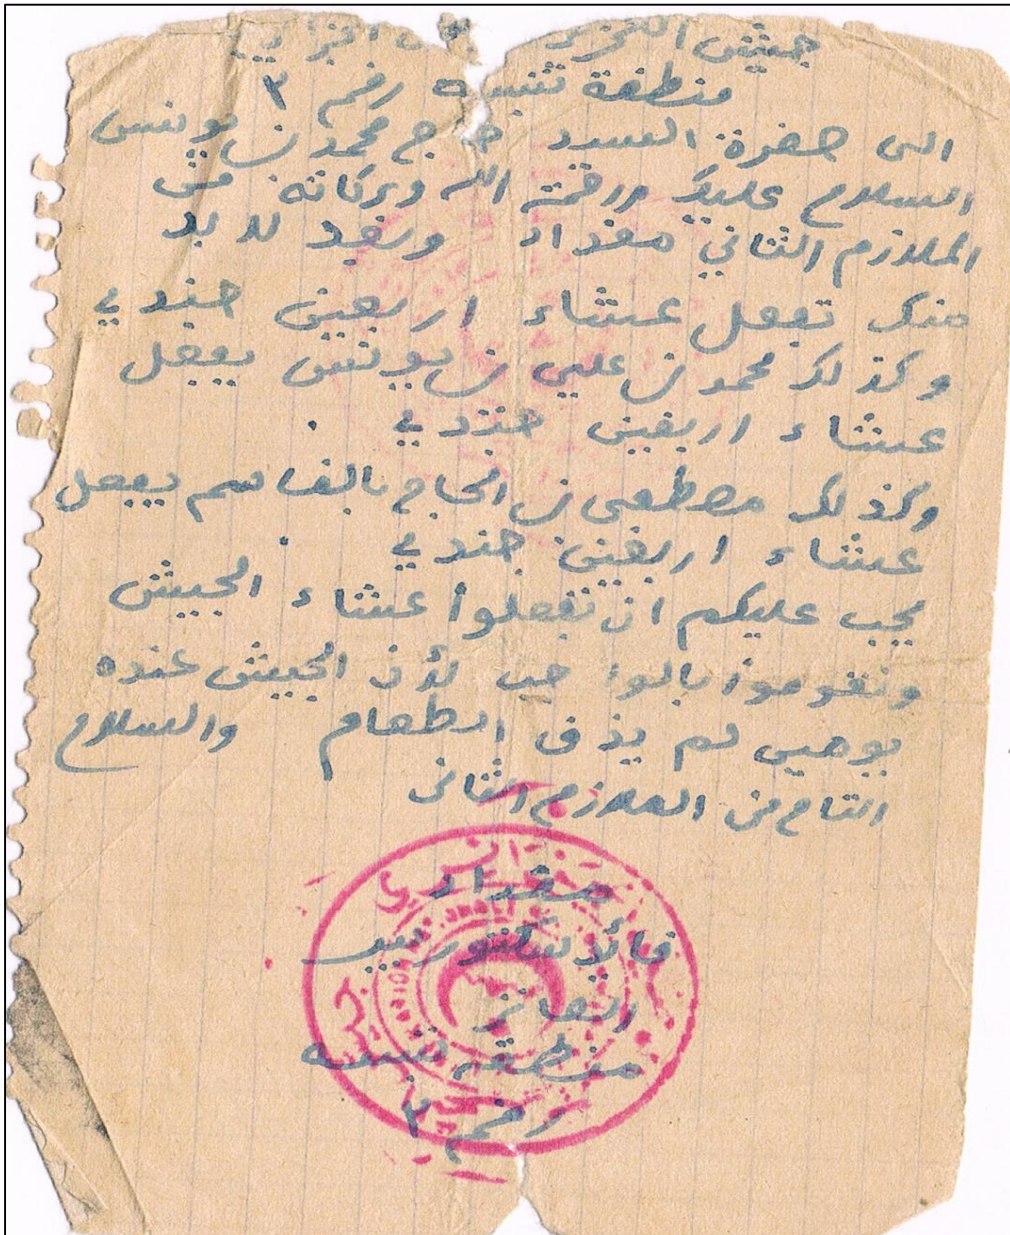 جيش التحرير
منطقة تبسه رقم ٢
الى حضرة السيد حاج محمد بن يونس
السلام عليك ورحمة الله وبركاته من
الملازم الثاني مقداد وبعد لا بد
منك تفعل عشاء اربعين جندي
وكذلك محمد بن علي بن يونس يفعل
عشاء اربعين جندي .
وكذلك مصطفى بن الحاج بالقاسم يفعل
عشاء اربعين جندي
يجب عليكم ان تفعلوا عشاء الجيش
وتقوموا بالواجب لأن الجيش عنده
يومين لم يذق الطعام والسلام
التام من الملازم الثاني
مقداد
قائد
منطقة تبسه
رقم ٢